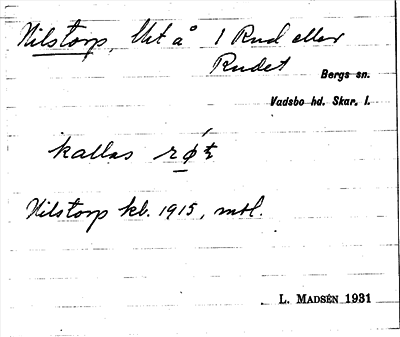 Nilstorp, Utt å 1 Rud eller
Rudet
Bergs sn.
Vadsbo hd. Skar. l.
kallas
Nilstorp kb. 1915, mtl.
L. MADSÉN 1931